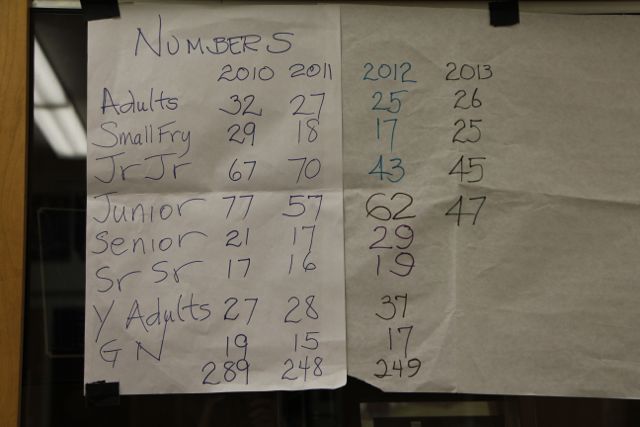 NUMBERS
2010 2011 2012 2013
Adults 32 27 25 26
Small Fry 29 18 17 25
Jr Jr 67 70 43 45
Junior 77 57 62 47
Senior 21 17 29
Sr Sr 17 16 19
Y Adults 27 28 37
G N 19 15 17
289 248 249